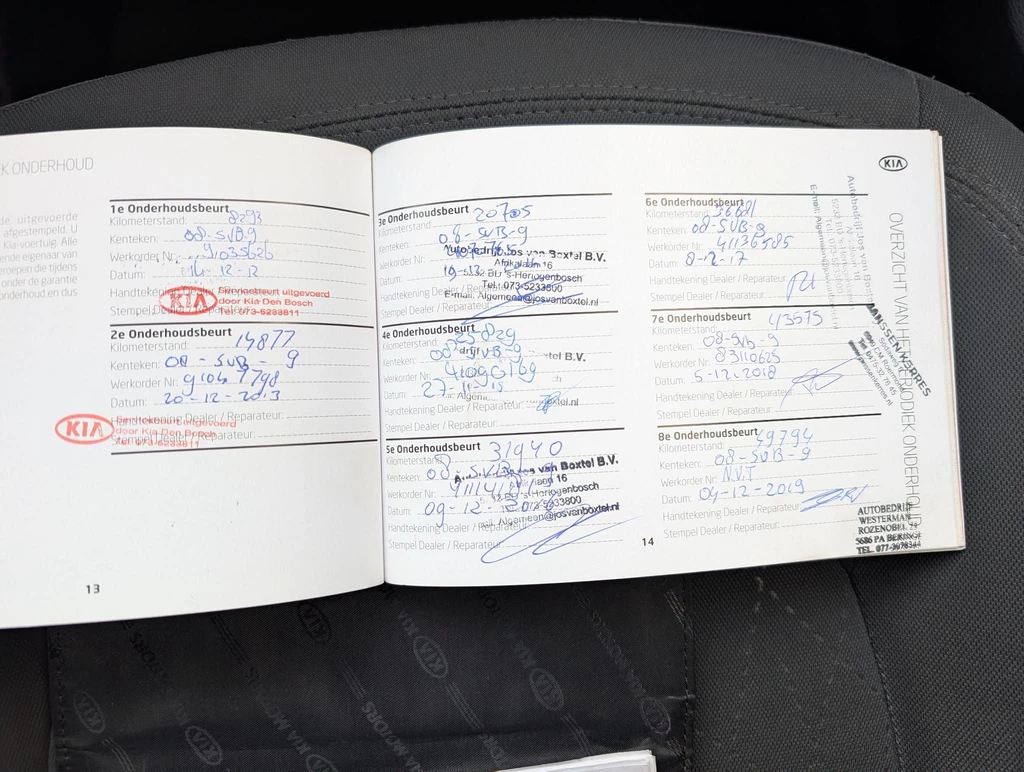 K ONDERHOUD
de uitgevoerde
afgestempeld. U
Kia-voertuig. Alle
ende eigenaar van
roepen die tijdens
onder de garantie
onderhoud en dus
1e Onderhoudsbeurt
Kilometerstand: 8293
Kenteken: 08-SVB-9
Werkorder Nr: 91035626
Datum: 14-12-12
Handtekening Dealer / Reparateur:
Stempel Dealer / Reparateur:
KIA
uitgevoerd
door Kia Den Bosch
Tel: 073-5233811
2e Onderhoudsbeurt
Kilometerstand: 14877
Kenteken: 08-SVB-9
Werkorder Nr:
Datum: 20-12-2013
Handtekening Dealer / Reparateur:
Stempel Dealer / Reparateur:
KIA
uitgevoerd
door Kia Den Bosch
Tel: 073-5233811
13
3e Onderhoudsbeurt
Kilometerstand: 20705
Kenteken: 08-SVB-9
Werkorder Nr:
Datum:
Handtekening Dealer / Reparateur:
Stempel Dealer / Reparateur:
Autobedrijf Jos van Boxtel B.V.
Afrikalaan 16
's-Hertogenbosch
Tel.: 073-5233800
E-mail. Algemeen@josvanboxtel.nl
4e Onderhoudsbeurt
Kilometerstand: 25829
Kenteken: 08-SVB-9
Werkorder Nr: 41090169
Datum: 27-11-15
Handtekening Dealer / Reparateur:
Stempel Dealer / Reparateur:
5e Onderhoudsbeurt
Kilometerstand: 31940
Kenteken: 08-SVB-9
Werkorder Nr:
Datum: 09-12-2016
Handtekening Dealer / Reparateur:
Stempel Dealer / Reparateur:
van Boxtel B.V.
16
's-Hertogenbosch
5233800
Algemeen@josvanboxtel.nl
14
KIA
6e Onderhoudsbeurt
Kilometerstand: 36681
Kenteken: 08-SVB-9
Werkorder Nr: 41136585
Datum: 8-12-17
Handtekening Dealer / Reparateur:
Stempel Dealer / Reparateur:
Autobedrijf Jos van Boxtel
7e Onderhoudsbeurt
Kilometerstand: 43575
Kenteken: 08-SVB-9
Werkorder Nr: 83110625
Datum: 5-12-2018
Handtekening Dealer / Reparateur:
Stempel Dealer / Reparateur:
JANSSEN KERRES
8e Onderhoudsbeurt
Kilometerstand: 49794
Kenteken: 08-SVB-9
Werkorder Nr: N.V.T
Datum: 04-12-2019
Handtekening Dealer / Reparateur:
Stempel Dealer / Reparateur:
AUTOBEDRIJF
WESTERMAN
ROZENOBEL 21
5686 PA BERINGE
TEL. 077-3078344
OVERZICHT VAN HET PERIODIEK ONDERHOUD
KIA MOTORS